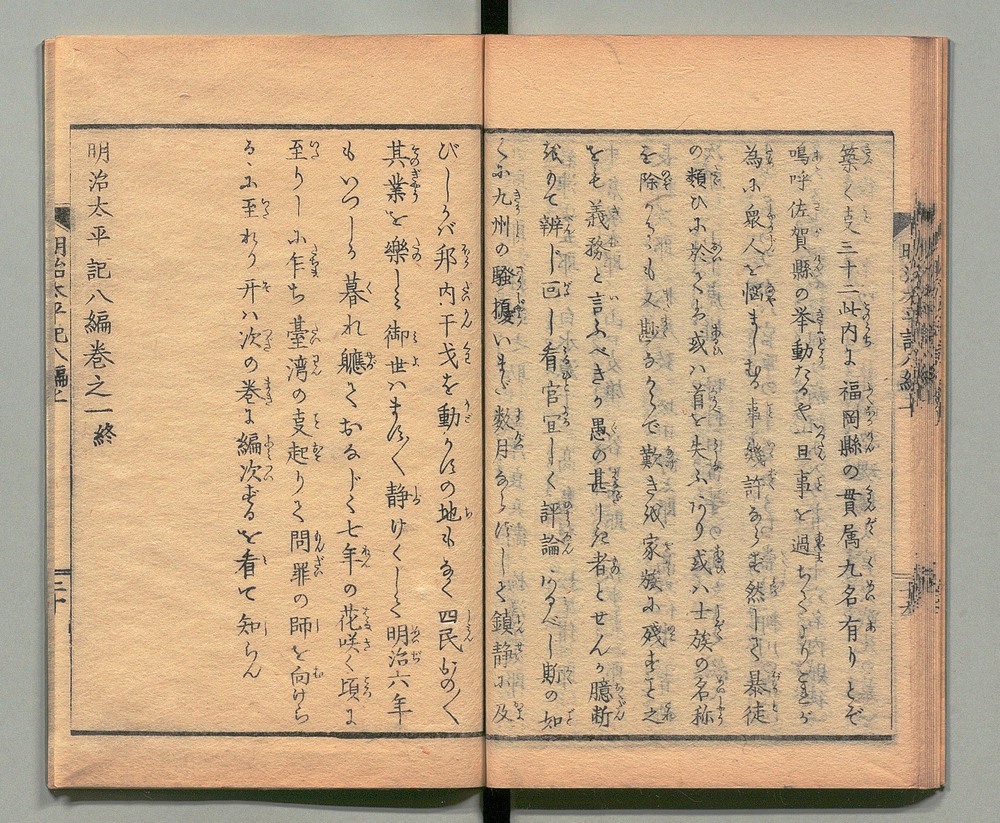 築く支三十二此内に福岡縣の貫属九名有りとぞ
嗚呼佐賀縣の挙動たるや一旦事を過ちしより
為に衆人を悩ましむる事幾許ならむ然して暴徒
の類ひに於ても或は首を失ふあり或は士族の名称
を除かるゝも又尠なからで歎きを家族に残すこと之
をも義務と言ふべきか愚の甚しき者とせんか臆断
をもて辨じ回し看官宜しく評論あるべし斯の如
くに九州の騒擾いまだ数月ならずして鎮静に及
びしかバ邦内干戈を動かすの地もなく四民おの〱
其業を樂しミ御世はます〱静けくして明治六年
もいつしか暮れ軈ておなじく七年の花咲く頃に
至りしに乍ち臺湾の支起りて問罪の師を向けら
るゝに至れり开は次の巻に編次するを看て知らん
明治太平記八編巻之一終
明治太平記八編一
明治太平記八編之一
二十